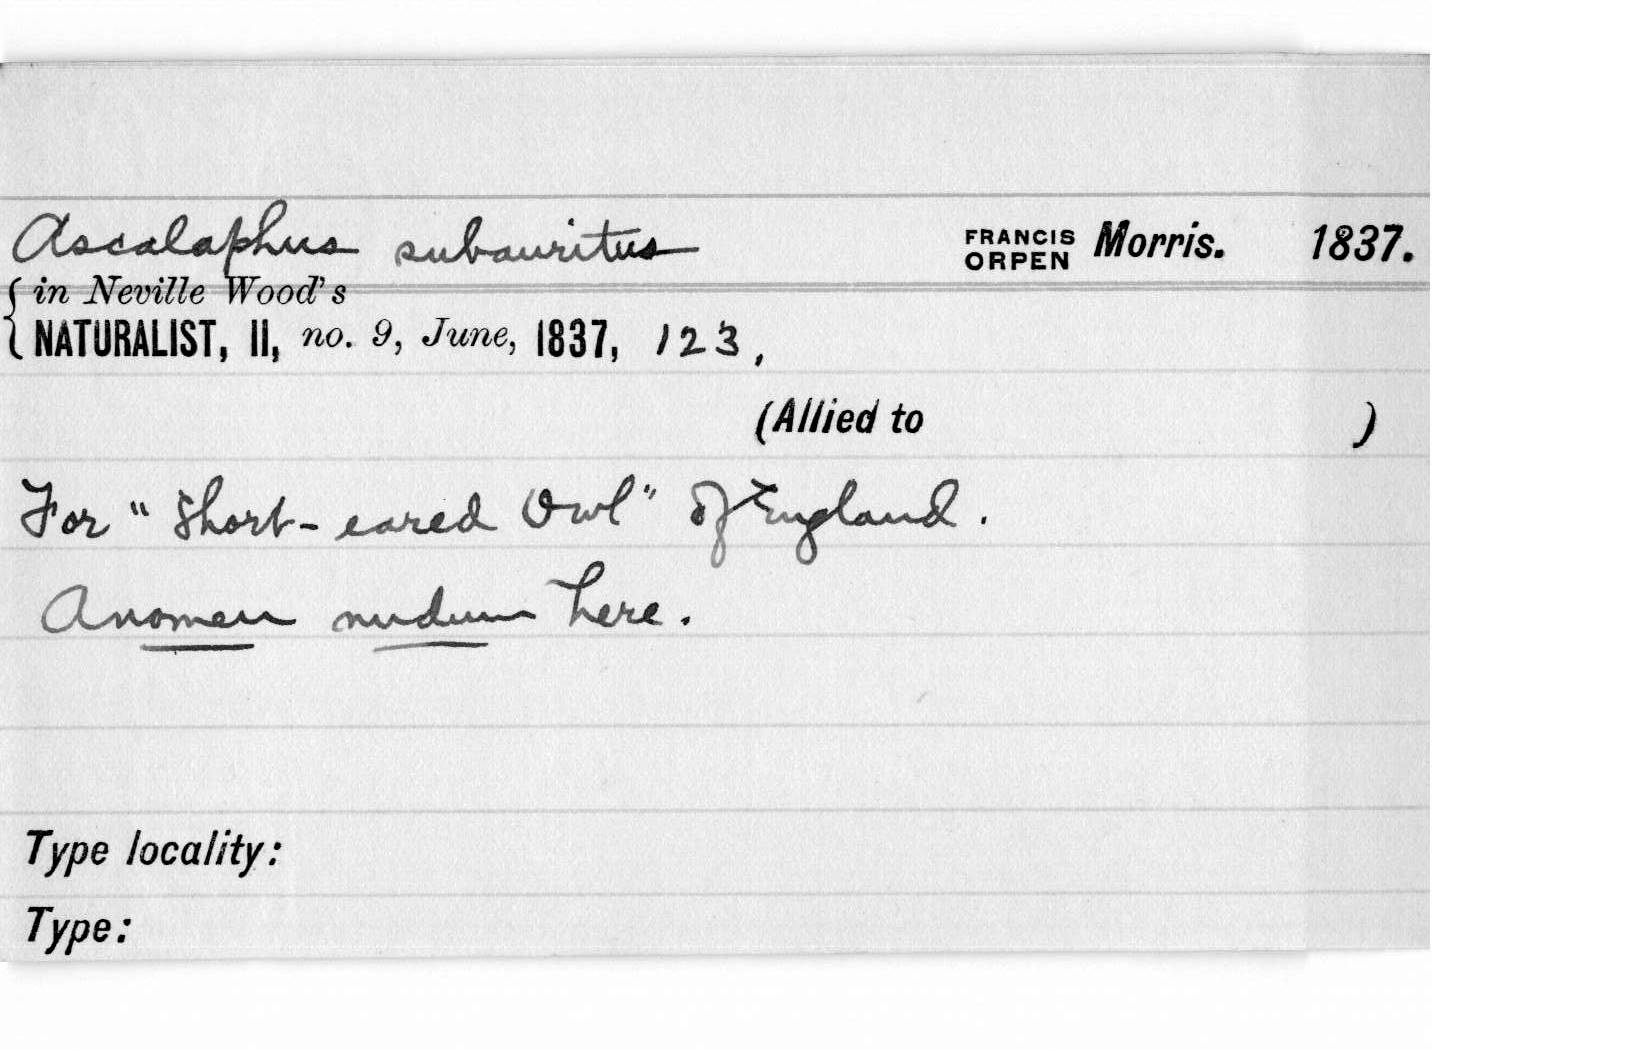 Ascalaphus subauritus FRANCIS ORPEN Morris. 1837.
in Neville Wood's
NATURALIST, II, no. 9, June, 1837, 123,
(Allied to )
For "Short-eared Owl" of England.
A nomen nudum here.
Type locality:
Type: